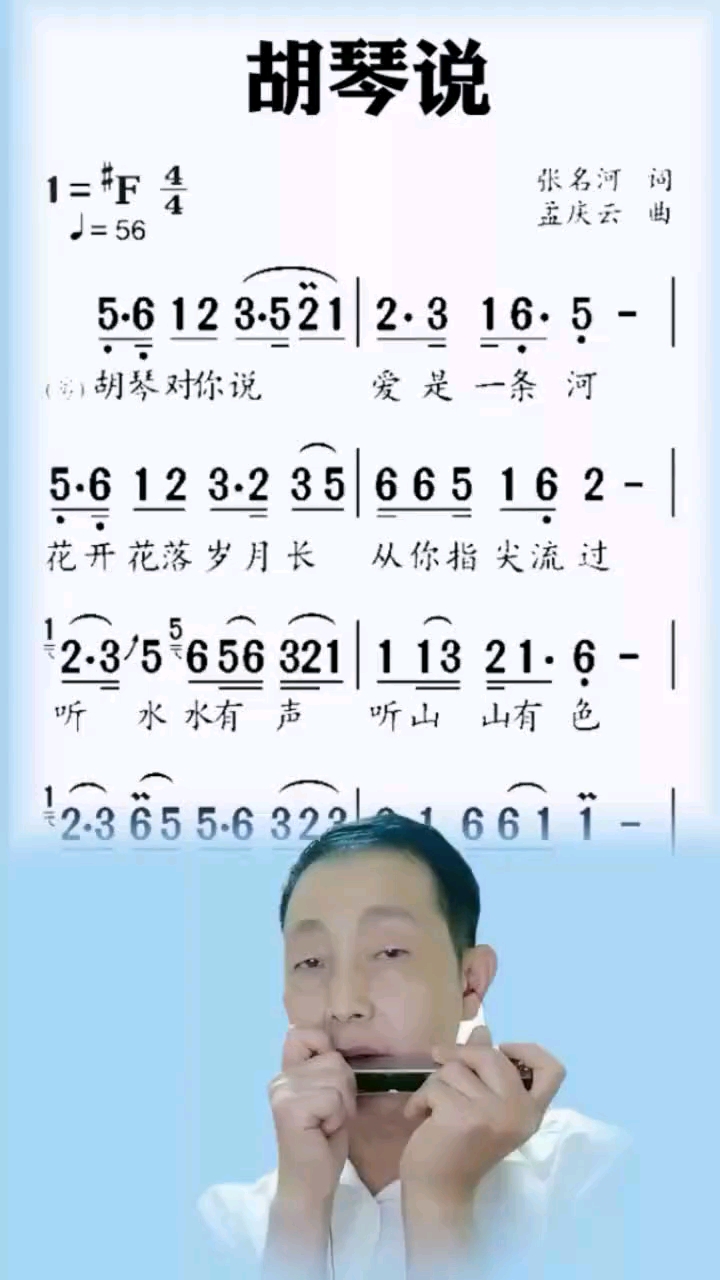 胡琴说
1=#F 4/4
张名河 词
♩=56
孟庆云 曲
5·6 12 3·5 21 | 2· 3 1 6· 5 - |
胡琴对你说 爱是一条河
5·6 12 3·2 35 | 6 6 5 1 6 2 - |
花开花落岁月长 从你指尖流过
1 2·3 5 5 6 56 321 | 1 13 21· 6 - |
听 水水有声 听山 山有色
1 2·3 65 5·6 323 | 1 6 6 1 1 -